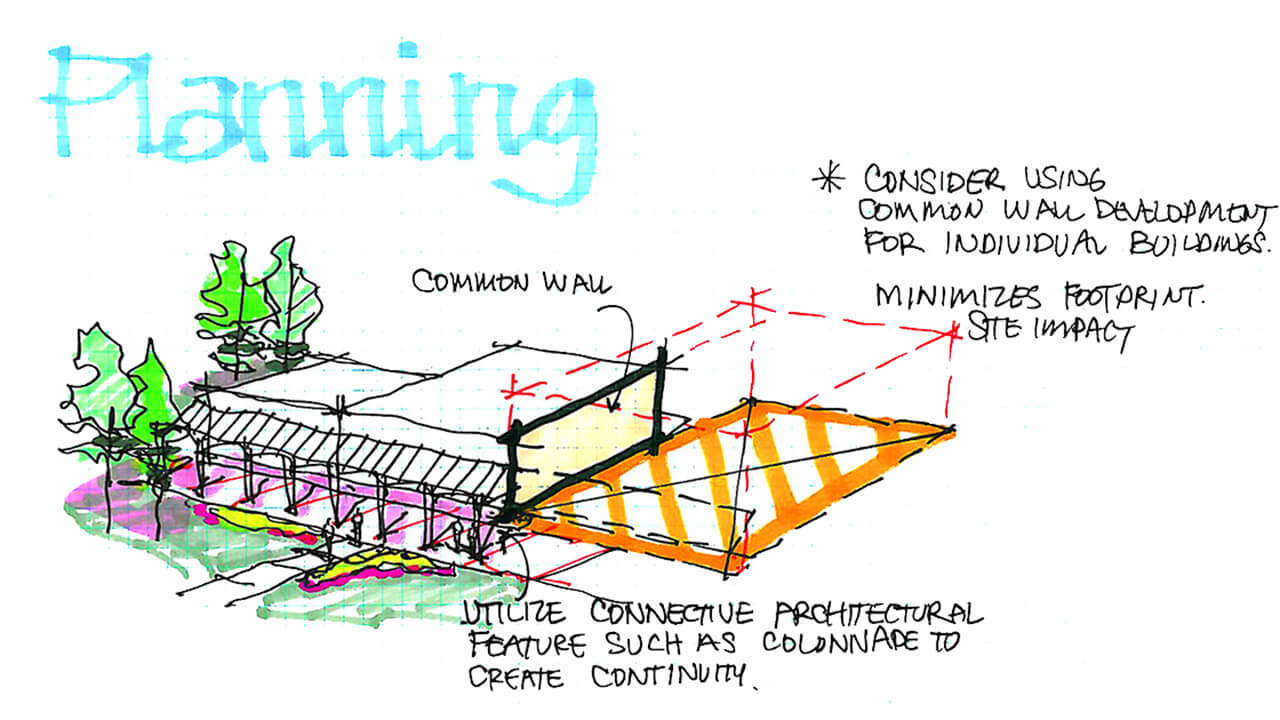 Planning
* CONSIDER USING
COMMON WALL DEVELOPMENT
FOR INDIVIDUAL BUILDINGS.
COMMON WALL
MINIMIZES FOOTPRINT.
SITE IMPACT
UTILIZE CONNECTIVE ARCHITECTURAL
FEATURE SUCH AS COLONNADE TO
CREATE CONTINUITY.